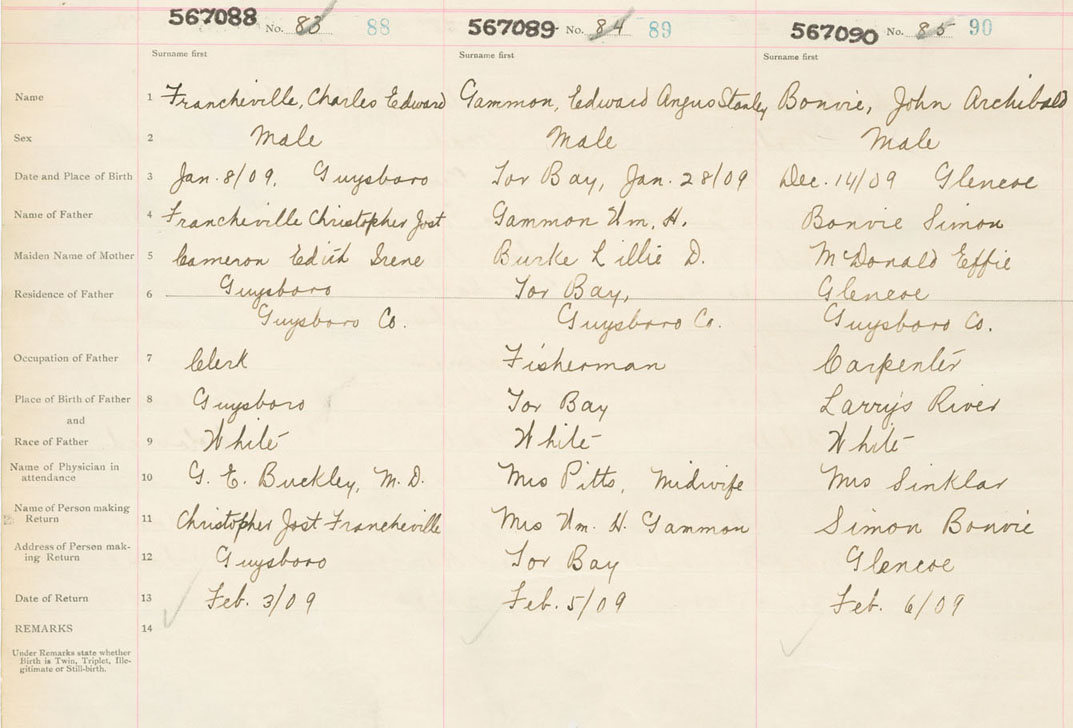 567088 No. 83 88 567089 No. 84 89 567090 No. 85 90
Surname first Surname first Surname first
Name 1 Francheville, Charles Edward Gammon, Edward Angus Stanley Bonvie, John Archibald
Sex 2 Male Male Male
Date and Place of Birth 3 Jan. 8/09. Guysboro Tor Bay, Jan. 28/09 Dec. 14/09 Glencoe
Name of Father 4 Francheville Christopher Jost Gammon Wm. H. Bonvie Simon
Maiden Name of Mother 5 Cameron Edith Irene Burke Lillie D. McDonald Effie
Residence of Father 6 Guysboro Tor Bay, Glencoe
Guysboro Co. Guysboro Co. Guysboro Co.
Occupation of Father 7 Clerk Fisherman Carpenter
Place of Birth of Father 8 Guysboro Tor Bay Larry's River
and
Race of Father 9 White White White
Name of Physician in
attendance 10 G. E. Buckley, M.D. Mrs Pitts, Midwife Mrs Sinklar
Name of Person making
Return 11 Christopher Jost Francheville Mrs Wm. H. Gammon Simon Bonvie
Address of Person mak-
ing Return 12 Guysboro Tor Bay Glencoe
Date of Return 13 Feb. 3/09 Feb. 5/09 Feb. 6/09
REMARKS 14
Under Remarks state whether
Birth is Twin, Triplet, Ille-
gitimate or Still-birth.